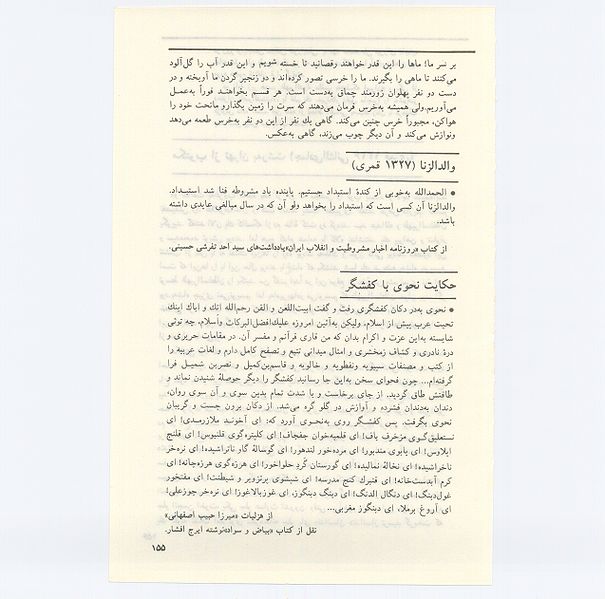 بر سر ما؛ ماها را این قدر خواهند رقصانید تا خسته شویم و این قدر آب را گل‌آلود
می‌کنند تا ماهی را بگیرند. ما را خرسی تصور کرده‌اند و دو زنجیر گردن ما آویخته و در
دست دو نفر پهلوان زورمند چماق به‌دست است. هر قسم بخواهند فوراً به‌عمل
می‌آوریم. ولی همیشه به‌خرس فرمان می‌دهند که سرت را زمین بگذارو ماتحت خود را
هواکن، مجبوراً خرس چنین می‌کند. گاهی یك نفر از این دو نفر به‌خرس طعمه می‌دهد
ونوازش می‌کند و آن دیگر چوب می‌زند، گاهی به‌عکس.
والدالزنا (۱۳۲۷ قمری)
● الحمدالله به‌خوبی از کندهٔ استبداد جستیم. پاینده باد مشروطه فنا شد استبداد.
والدالزنا آن کسی است که استبداد را بخواهد ولو آن که در سال مبالغی عایدی داشته
باشد.
از کتاب «روزنامه اخبار مشروطیت و انقلاب ایران» یادداشت‌های سید احد تفرشی حسینی.
حکایت نحوی با کفشگر
● نحوی به‌در دکان کفشگری رفت و گفت ابیت‌اللعن و الفن رحم‌الله انك و اباك اینك
تحیت عرب پیش از اسلام، ولیکن به‌آئین امروزه علیك‌افضل‌البرکات والسلام، چه توئی
شایسته به‌این عزت و اکرام بدان که من قاری قرآنم و مفسر آن. در مقامات حریری و
درهٔ نادری و کشاف زمخشری و امثال میدانی تتبع و تصفح کامل دارم و لغات عربیه را
از کتب و مصنفات سیبویه ونفطویه و خالویه و قاسم‌بن‌کمیل و نصربن شمیل فرا
گرفته‌ام... چون فحوای سخن به‌این جا رسانید کفشگر را دیگر حوصلهٔ شنیدن نماند و
طاقتش طاق گردید. از جای برخاست و با شدت تمام بدین سوی و آن سوی روان،
دندان به‌دندان فشرده و آوازش در گلو گره می‌شد. از دکان برون جست و گریبان
نحوی بگرفت. پس کفشگر روی به‌نحوی آورد که: ای آخوند ملازرمدی! ای
نستعلیق‌گوی مزخرف باف! ای قلمبه‌خوان جفجاف! ای کلپتره‌گوی قلنبوس! ای قلنج
ایلاوس! ای یابوی مندبور! ای مرده‌خور لندهور! ای گوسالهٔ گاو ناتراشیده! ای نره‌خر
ناخراشیده! ای نخالهٔ نمالیده! ای گورستان گَردِ حلواخور! ای هرزه‌گوی هرزه‌چانه! ای
کرم آبدست‌خانه! ای فنبرك کنج مدرسه! ای شپشوی پرتزویر و شیطنت! ای مفتخور
غول‌دینگ! ای دنگال الدنگ! ای دبنگ دبنگوز، ای غوزبالاغوز! ای نره‌خر جوزعلی!
ای آروغ برملا، ای دبنگوز مغربی...
از هزلیات «میرزا حبیب اصفهانی»
نقل از کتاب «بیاض و سواد» نوشته ایرج افشار.
۱۵۵